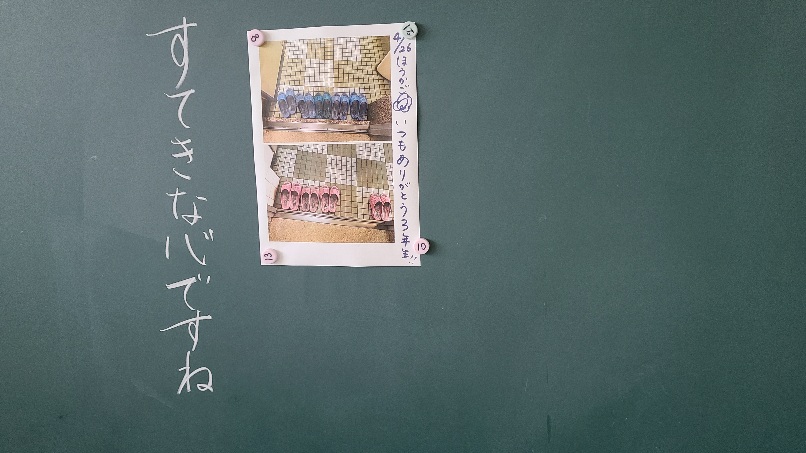 4/26 ほうかご いつもありがとう3年生!!
すてきな心ですね
8
13
10